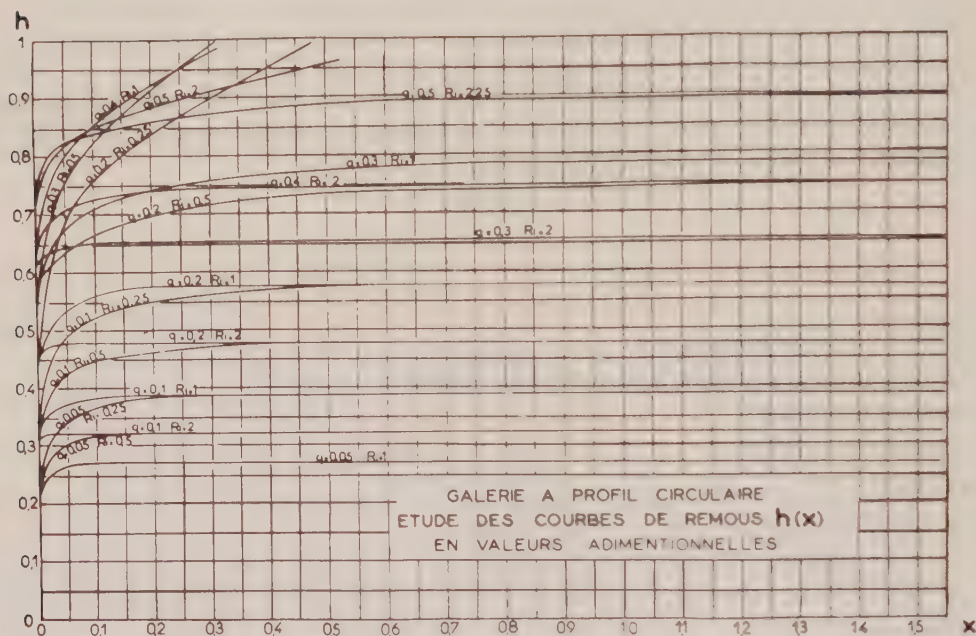 h
1
0,9
0,8
0,7
0,6
0,5
0,4
0,3
0,2
0,1
0
q=0,4 Ri=1
q=0,5 Ri=2
q=0,5 Ri=2,25
q=0,3 Ri=0,5
q=0,2 Ri=0,25
q=0,3 Ri=1
q=0,4 Ri=2
q=0,2 Ri=0,5
q=0,3 Ri=2
q=0,2 Ri=1
q=0,1 Ri=0,25
q=0,2 Ri=2
q=0,1 Ri=0,5
q=0,1 Ri=1
q=0,05 Ri=0,25
q=0,1 Ri=2
q=0,05 Ri=0,5
q=0,05 Ri=1
GALERIE A PROFIL CIRCULAIRE
ETUDE DES COURBES DE REMOUS h(x)
EN VALEURS ADIMENTIONNELLES
0 0,1 0,2 0,3 0,4 0,5 0,6 0,7 0,8 0,9 1 1,1 1,2 1,3 1,4 1,5 x